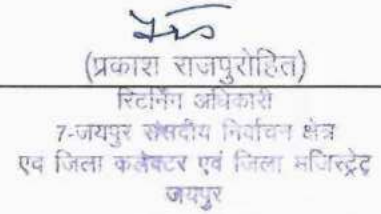 (प्रकाश राजपुरोहित)
रिटर्निंग अधिकारी
7-जयपुर संसदीय निर्वाचन क्षेत्र
एवं जिला कलेक्टर एवं जिला मजिस्ट्रेट
जयपुर